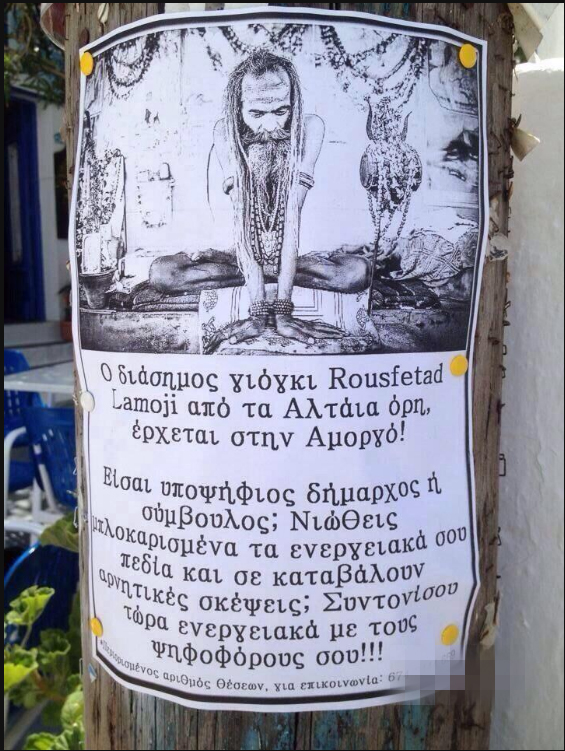 Ο διάσημος γιόγκι Rousfetad
Lamoji από τα Αλτάια όρη,
έρχεται στην Αμοργό!
Είσαι υποψήφιος δήμαρχος ή
σύμβουλος; Νιώθεις
μπλοκαρισμένα τα ενεργειακά σου
πεδία και σε καταβάλουν
αρνητικές σκέψεις; Συντονίσου
τώρα ενεργειακά με τους
ψηφοφόρους σου!!!
*Περιορισμένος αριθμός θέσεων, για επικοινωνία: